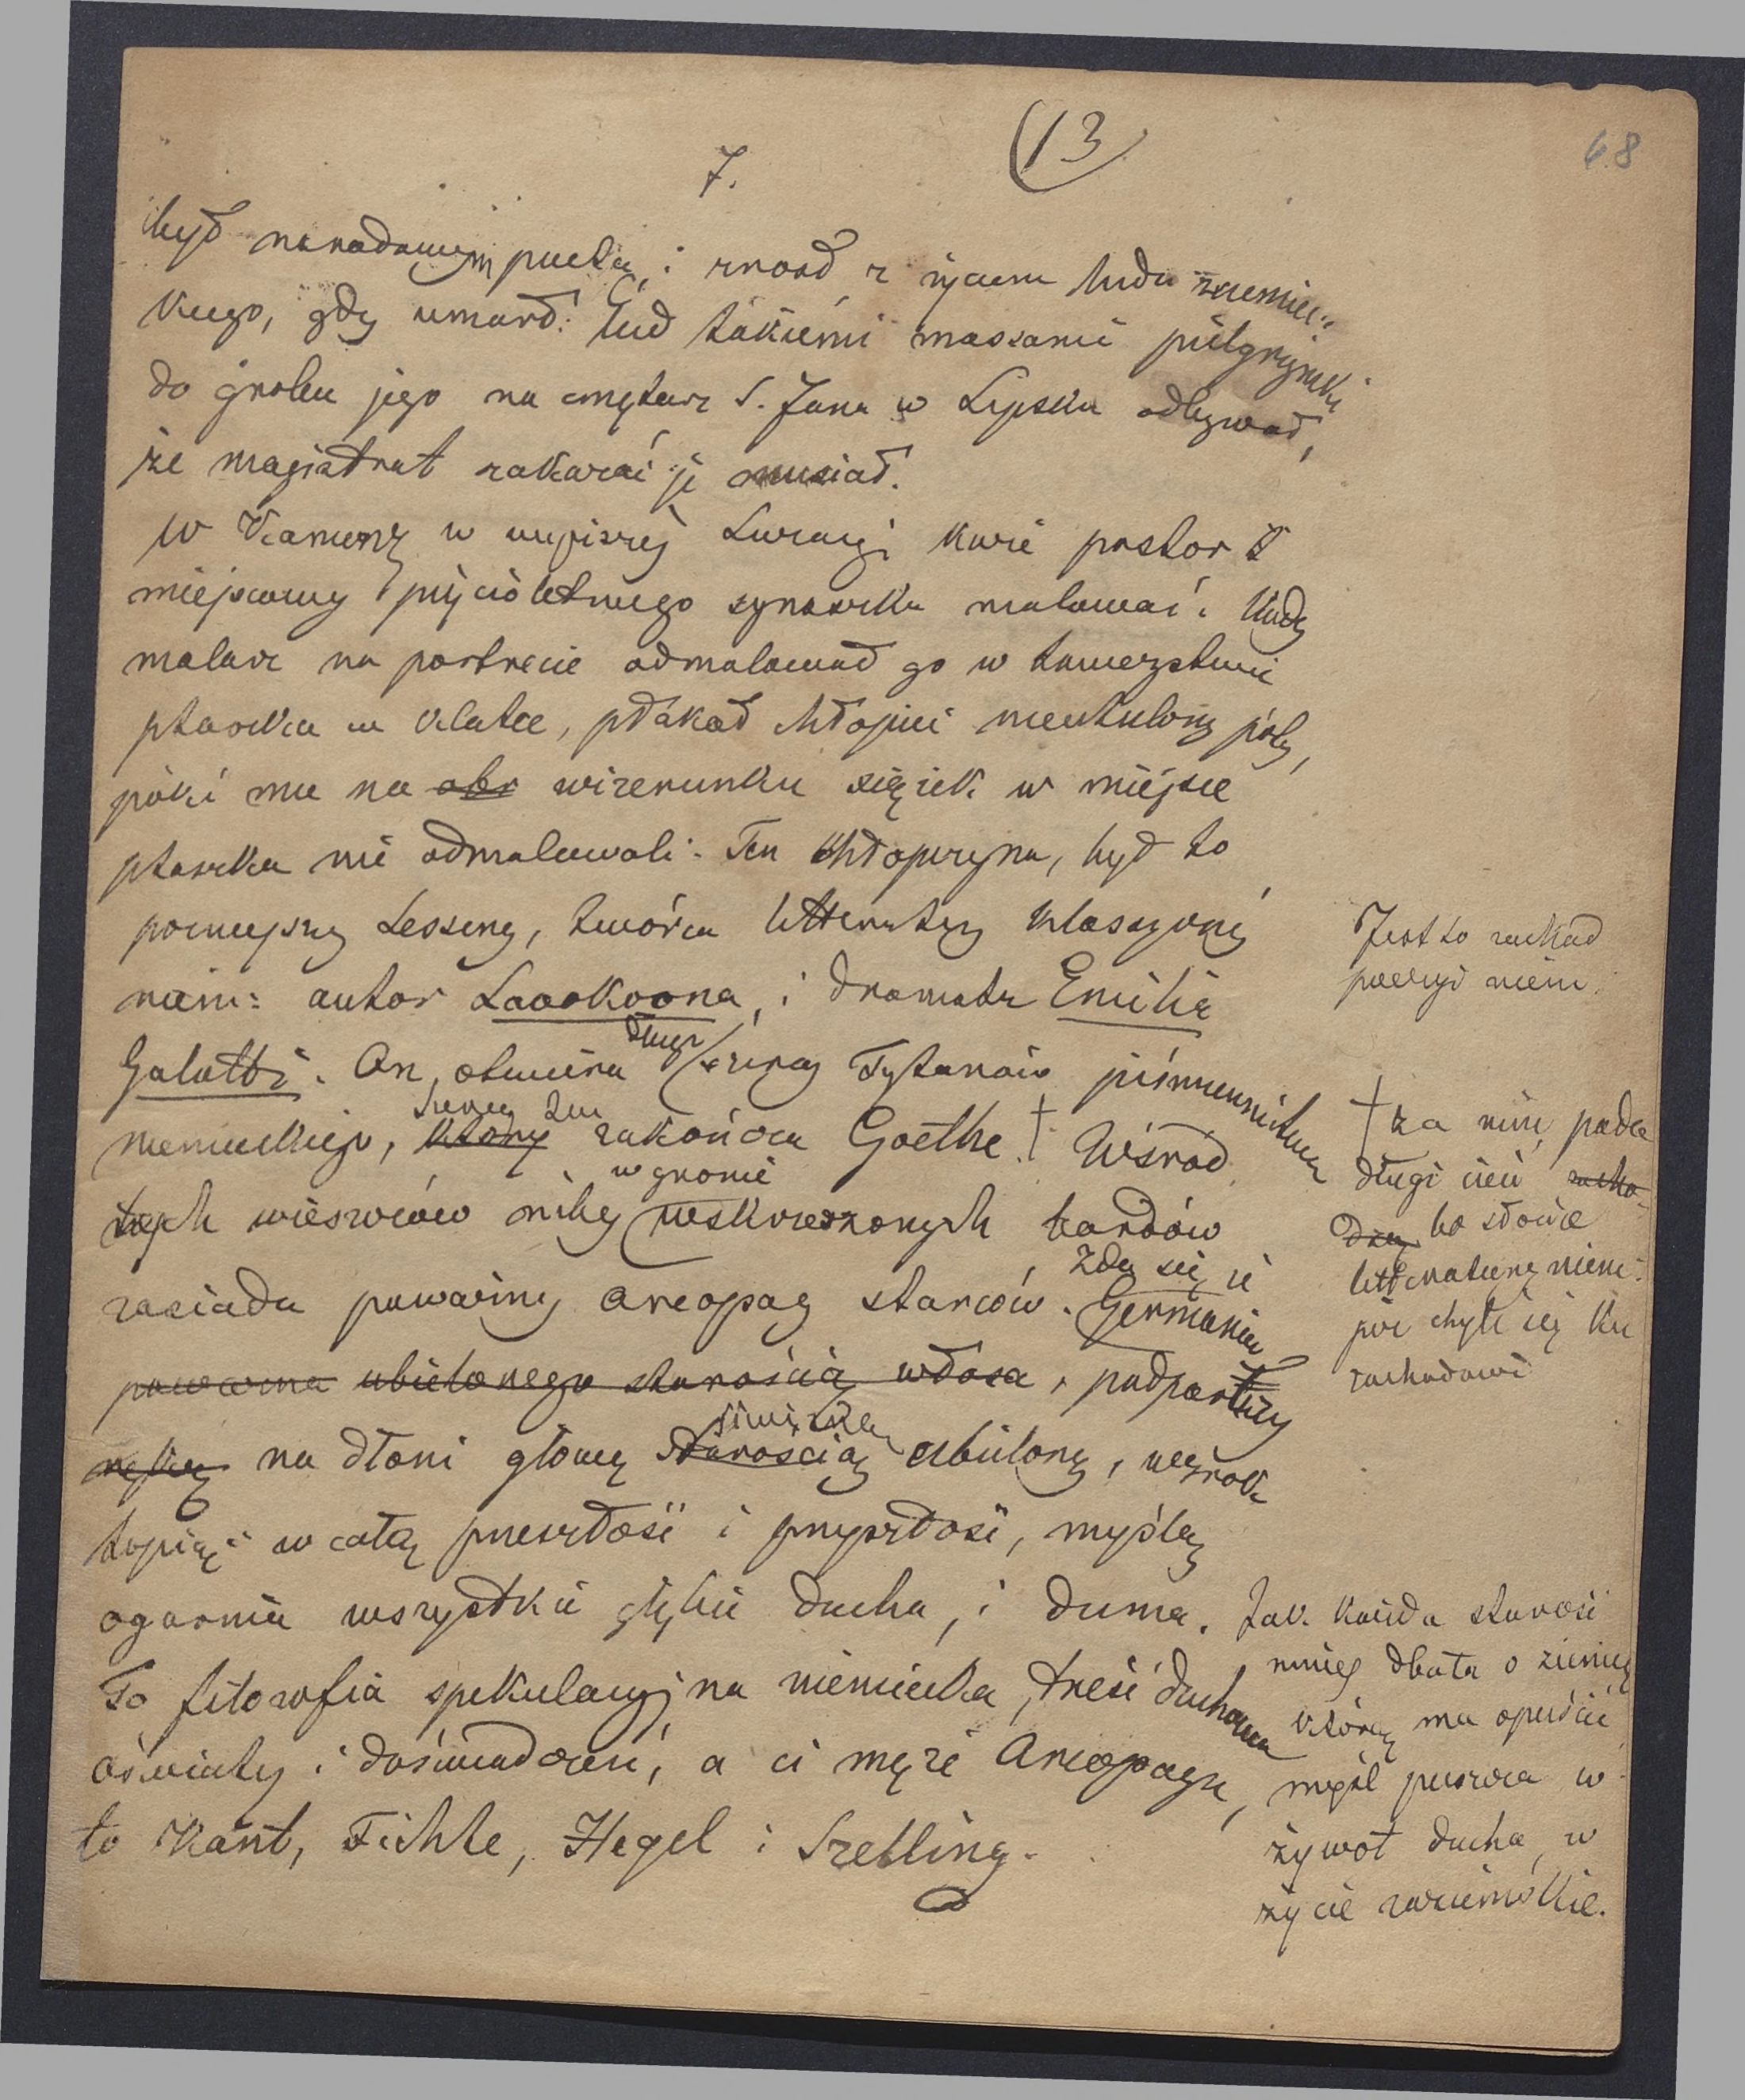 7.
(13)
68
był narodowym poetą, i zrosł z życiem ludu niemiec-
kiego, gdy umarł. Lud takiemi massami pielgrzymki
do grobu jego na cmętarz S. Jana w Lipsku odbywał,
że magistrat zakazać je musiał.
W Kamenz w wyższej Luzacyi każe pastor
miejscowy pięcioletniego synaczka malować. Kiedy
malarz na portrecie odmalował go w towarzystwie
ptaszka w klatce, płakał chłopiec nieutulony póty,
póki mu na obr wizerunku siążek w miejsce
ptaszka nie odmalowali. Ten chłopczyna, był to
poźniejszy Lessing, twórca litteratury klassycznej
niem: autor Laookoona, i dramatu Emilia
Galotti. On otwiera długi szereg Tytanów piśmiennictwa
niemieckiego, który szereg ten zakończa Goethe. † Wśród
tych wieszczów niby w gronie wskrzeszonych bardów
zasiada poważny areopag starców. Zda się, że Germania
poważna ubielonego starością włosa, podparłszy
rękę na dłoni głowę starością siwizną ubieloną, wzrok
topiąc w całą przeszłość i przyszłość, myślą
ogarnia wszystkie głębie ducha, i duma.
To filozofia spekulacyjna niemiecka, treść duchowa
oświaty i doświadczeń, a ci męże Areopagu,
to Kant, Fichte, Hegel i Szelling.
Jest to zakład
poezyi niem.
† za nim pada
długi cień zacho-
dzą bo słońce
litteratury niem:
już chyli się ku
zachodowi
Jak każda starość
mniej dbała o ziemię
którą ma opuścić
myśl puszcza w
żywot ducha, w
życie zaziemskie.